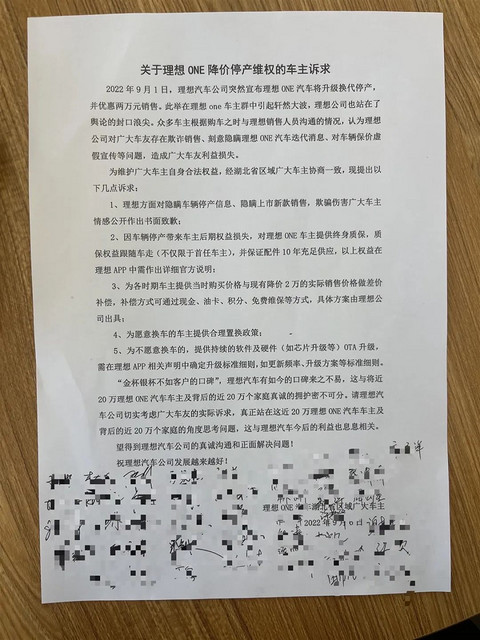 关于理想 ONE 降价停产维权的车主诉求
2022 年 9 月 1 日，理想汽车公司突然宣布理想 ONE 汽车将升级换代停产，
并优惠两万元销售。此举在理想 one 车主群中引起轩然大波，理想公司也站在了
舆论的封口浪尖。众多车主根据购车之时与理想销售人员沟通的情况，认为理想
公司对广大车友存在欺诈销售、刻意隐瞒理想 ONE 汽车迭代消息、对车辆保价虚
假宣传等问题，造成广大车友利益损失。
为维护广大车主自身合法权益，经湖北省区域广大车主协商一致，现提出以
下几点诉求：
1、理想方面对隐瞒车辆停产信息、隐瞒上市新款销售，欺骗伤害广大车主
情感公开作出书面致歉；
2、因车辆停产带来车主后期权益损失，对理想 ONE 车主提供终身质保，质
保权益跟随车走（不仅限于首任车主），并保证配件 10 年充足供应，以上权益在
理想 APP 中需作出详细官方说明；
3、为各时期车主提供当时购买价格与现有降价 2 万的实际销售价格做差价
补偿，补偿方式可通过现金、油卡、积分、免费维保等方式，具体方案由理想公
司出具；
4、为愿意换车的车主提供合理置换政策；
5、为不愿意换的，提供持续的软件及硬件（如芯片升级等）OTA 升级，
需在理想 APP 相关声明中确定升级标准细则，如更新频率、升级方案等标准细则。
“金杯银杯不如客户的口碑”，理想汽车有如今的口碑来之不易，这与将近
20 万理想 ONE 汽车车主及背后的近 20 万个家庭真诚的拥护密不可分。请理想汽
车公司切实考虑广大车友的实际诉求，真正站在这近 20 万理想 ONE 汽车车主及
背后的近 20 万个家庭的角度思考问题，这与理想汽车今后的利益也息息相关。
望得到理想汽车公司的真诚沟通和正面解决问题！
祝理想汽车公司发展越来越好！
理想 ONE 汽车湖北省区域广大车主
2022 年 9 月 日